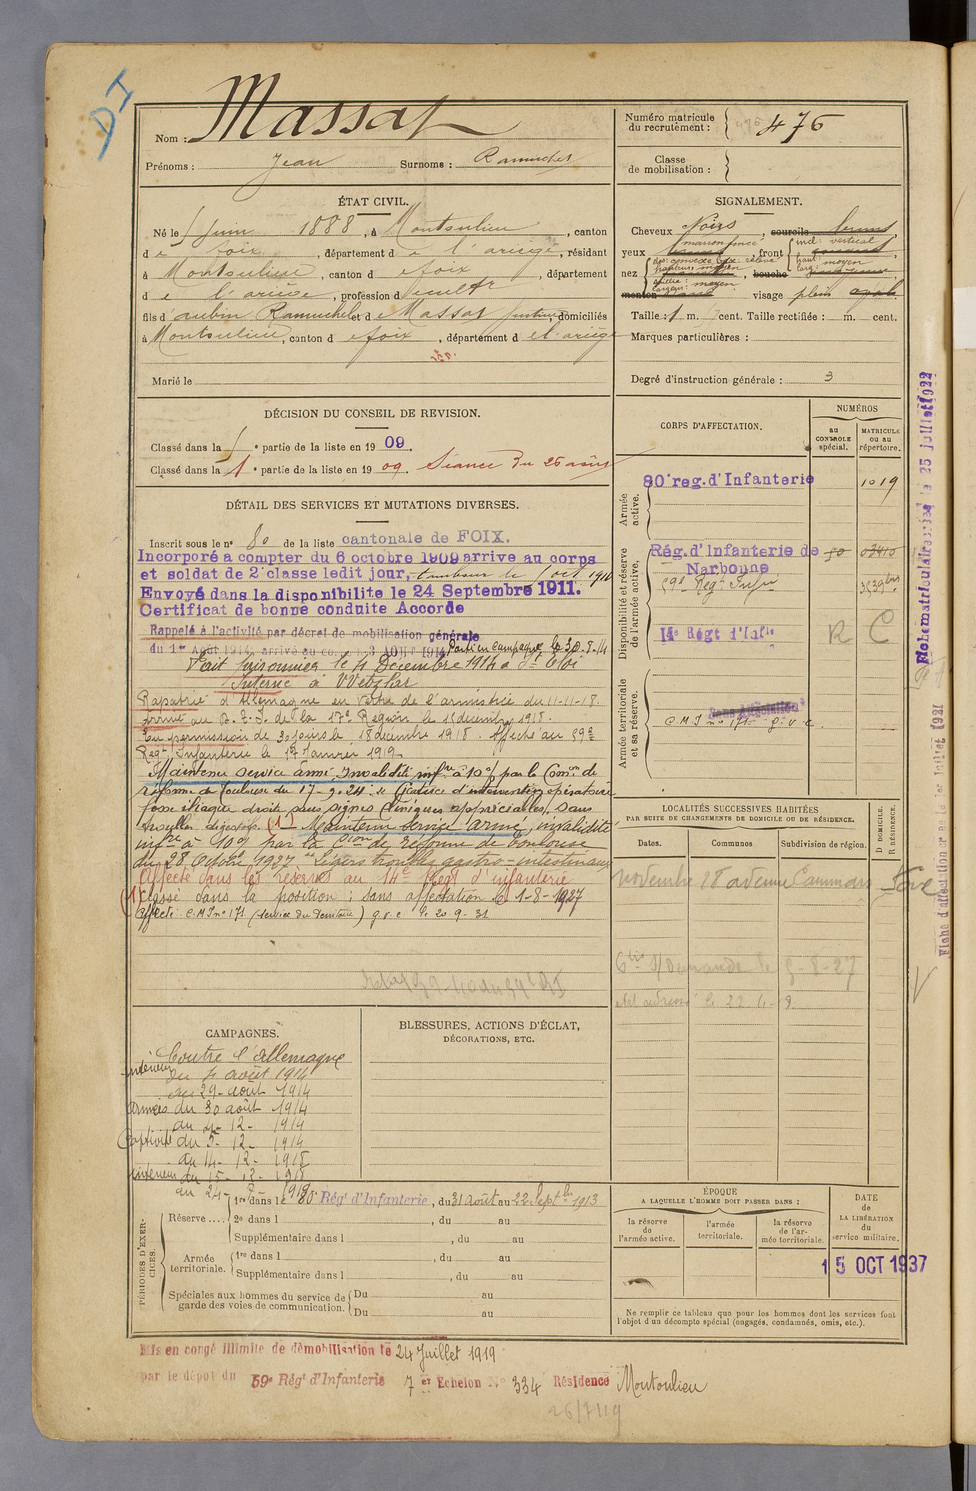 DI
Nom : Massat
Prénoms : Jean Surnoms : Ramuchet
Numéro matricule du recrutement : 476
Classe de mobilisation :
ÉTAT CIVIL.
Né le 5 juin 1888, à Montoulieu, canton
de foix, département de l'ariège, résidant
à Montoulieu, canton d foix, département
de l'ariège, profession d cultr
fils d'aubin Ramuchet et de Massat Justine, domiciliés
à Montoulieu, canton d foix, département d el'ariège
Marié le
SIGNALEMENT.
Cheveux Noirs, sourcils
yeux marron foncé, front incl: vertical
haut: moyen
nez dos: base: relevé
hauteur: moyen
largeur: moyen bouche
menton visage plein
Taille : 1 m. cent. Taille rectifiée : m. cent.
Marques particulières :
Degré d'instruction générale : 3
DÉCISION DU CONSEIL DE REVISION.
Classé dans la e partie de la liste en 1909.
Classé dans la 1e partie de la liste en 1909 Séance du 26 août
DÉTAIL DES SERVICES ET MUTATIONS DIVERSES.
Inscrit sous le n° 80 de la liste cantonale de FOIX.
Incorporé a compter du 6 octobre 1909 arrive au corps
et soldat de 2e classe ledit jour, tambour le oct 1910
Envoyé dans la disponibilite le 24 Septembre 1911.
Certificat de bonne conduite Accordé
Rappelé à l'activité par décret de mobilisation générale
du 1er Août 1914, arrivé au corps le 3 AOUT 1914 Parti en campagne le 30-8-14
Fait prisonnier le 4 Décembre 1914 à St Eloi
Interné à Wetzlar
Rapatrié d'Allemagne en vertu de l'armistice du 11-11-18.
arrivé au D. E. I. de la 17e Région le 15 décembre 1918.
En permission de 30 jours le 18 décembre 1918. Affecté au 59e
Regt Infanterie le 17 Janvier 1919.
Maintenu service armé, Invalidité infre à 10% par la Comon de
réforme de Toulouse du 17-9-24: "Cicatrice d'intervention opératoire
fosse iliaque droite sans signes cliniques appréciables, sans
troubles digestifs. (1) Maintenu Service armé, invalidité
infre à 10% par la Cion de réforme de Toulouse
du 28 Octobre 1927 "Légers troubles gastro-intestinaux
Affecté dans les réserves au 14e Regt d'infanterie
(1) Classé dans la position: sans affectation le 1-8-1927
Affecté: C.M.I n° 171 (Service du Territoire) g.v.c le 20-9-31
CORPS D'AFFECTATION.
NUMÉROS
au CONTRÔLE spécial.
MATRICULE ou au répertoire.
Armée active.
80e reg. d'Infanterie 1019
Disponibilité et réserve de l'armée active.
Rég. d'Infanterie de Narbonne 80 02410
59e Regt Infie 3539 bis
14e Régt d'Infie R C
Armée territoriale et sa réserve.
Sans Affectation
C M I n° 171 g. v. c.
LOCALITÉS SUCCESSIVES HABITÉES
PAR SUITE DE CHANGEMENTS DE DOMICILE OU DE RÉSIDENCE.
Dates. Communes Subdivision de région. D. DOMICILE. R. RÉSIDENCE.
novembre 18 avenue Foix
s/ Demande le 9-8-27
le 22-4-
CAMPAGNES.
Contre l'Allemagne
Intérieur du 4 août 1914
au 29 août 1914
Armées du 30 août 1914
au 4-12-1914
Captivité du 5-12-1914
au 14-12-1918
Intérieur du 15-12-1918
au 24-
BLESSURES, ACTIONS D'ÉCLAT,
DÉCORATIONS, ETC.
PÉRIODES D'EXERCICES.
Réserve.... 1re dans le 80 Régt d'Infanterie, du 31 août au 22 Septbre 1913
2e dans l , du au
Supplémentaire dans l , du au
Armée territoriale. 1re dans l , du au
Supplémentaire dans l , du au
Spéciales aux hommes du service de garde des voies de communication. Du au
Du au
ÉPOQUE
A LAQUELLE L'HOMME DOIT PASSER DANS :
la réserve de l'armée active.
l'armée territoriale.
la réserve de l'armée territoriale.
DATE de LA LIBÉRATION du service militaire.
15 OCT 1937
Ne remplir ce tableau que pour les hommes dont les services font
l'objet d'un décompte spécial (engagés, condamnés, omis, etc.).
Mis en congé illimité de démobilisation le 24 Juillet 1919
par le dépôt du 59e Régt d'Infanterie 7e Echelon N° 334 Résidence Montoulieu
26/7/19
Fiche matriculaire créée le 25 juillet 1922
Fiche d'affectation créée le 1er juillet 1921